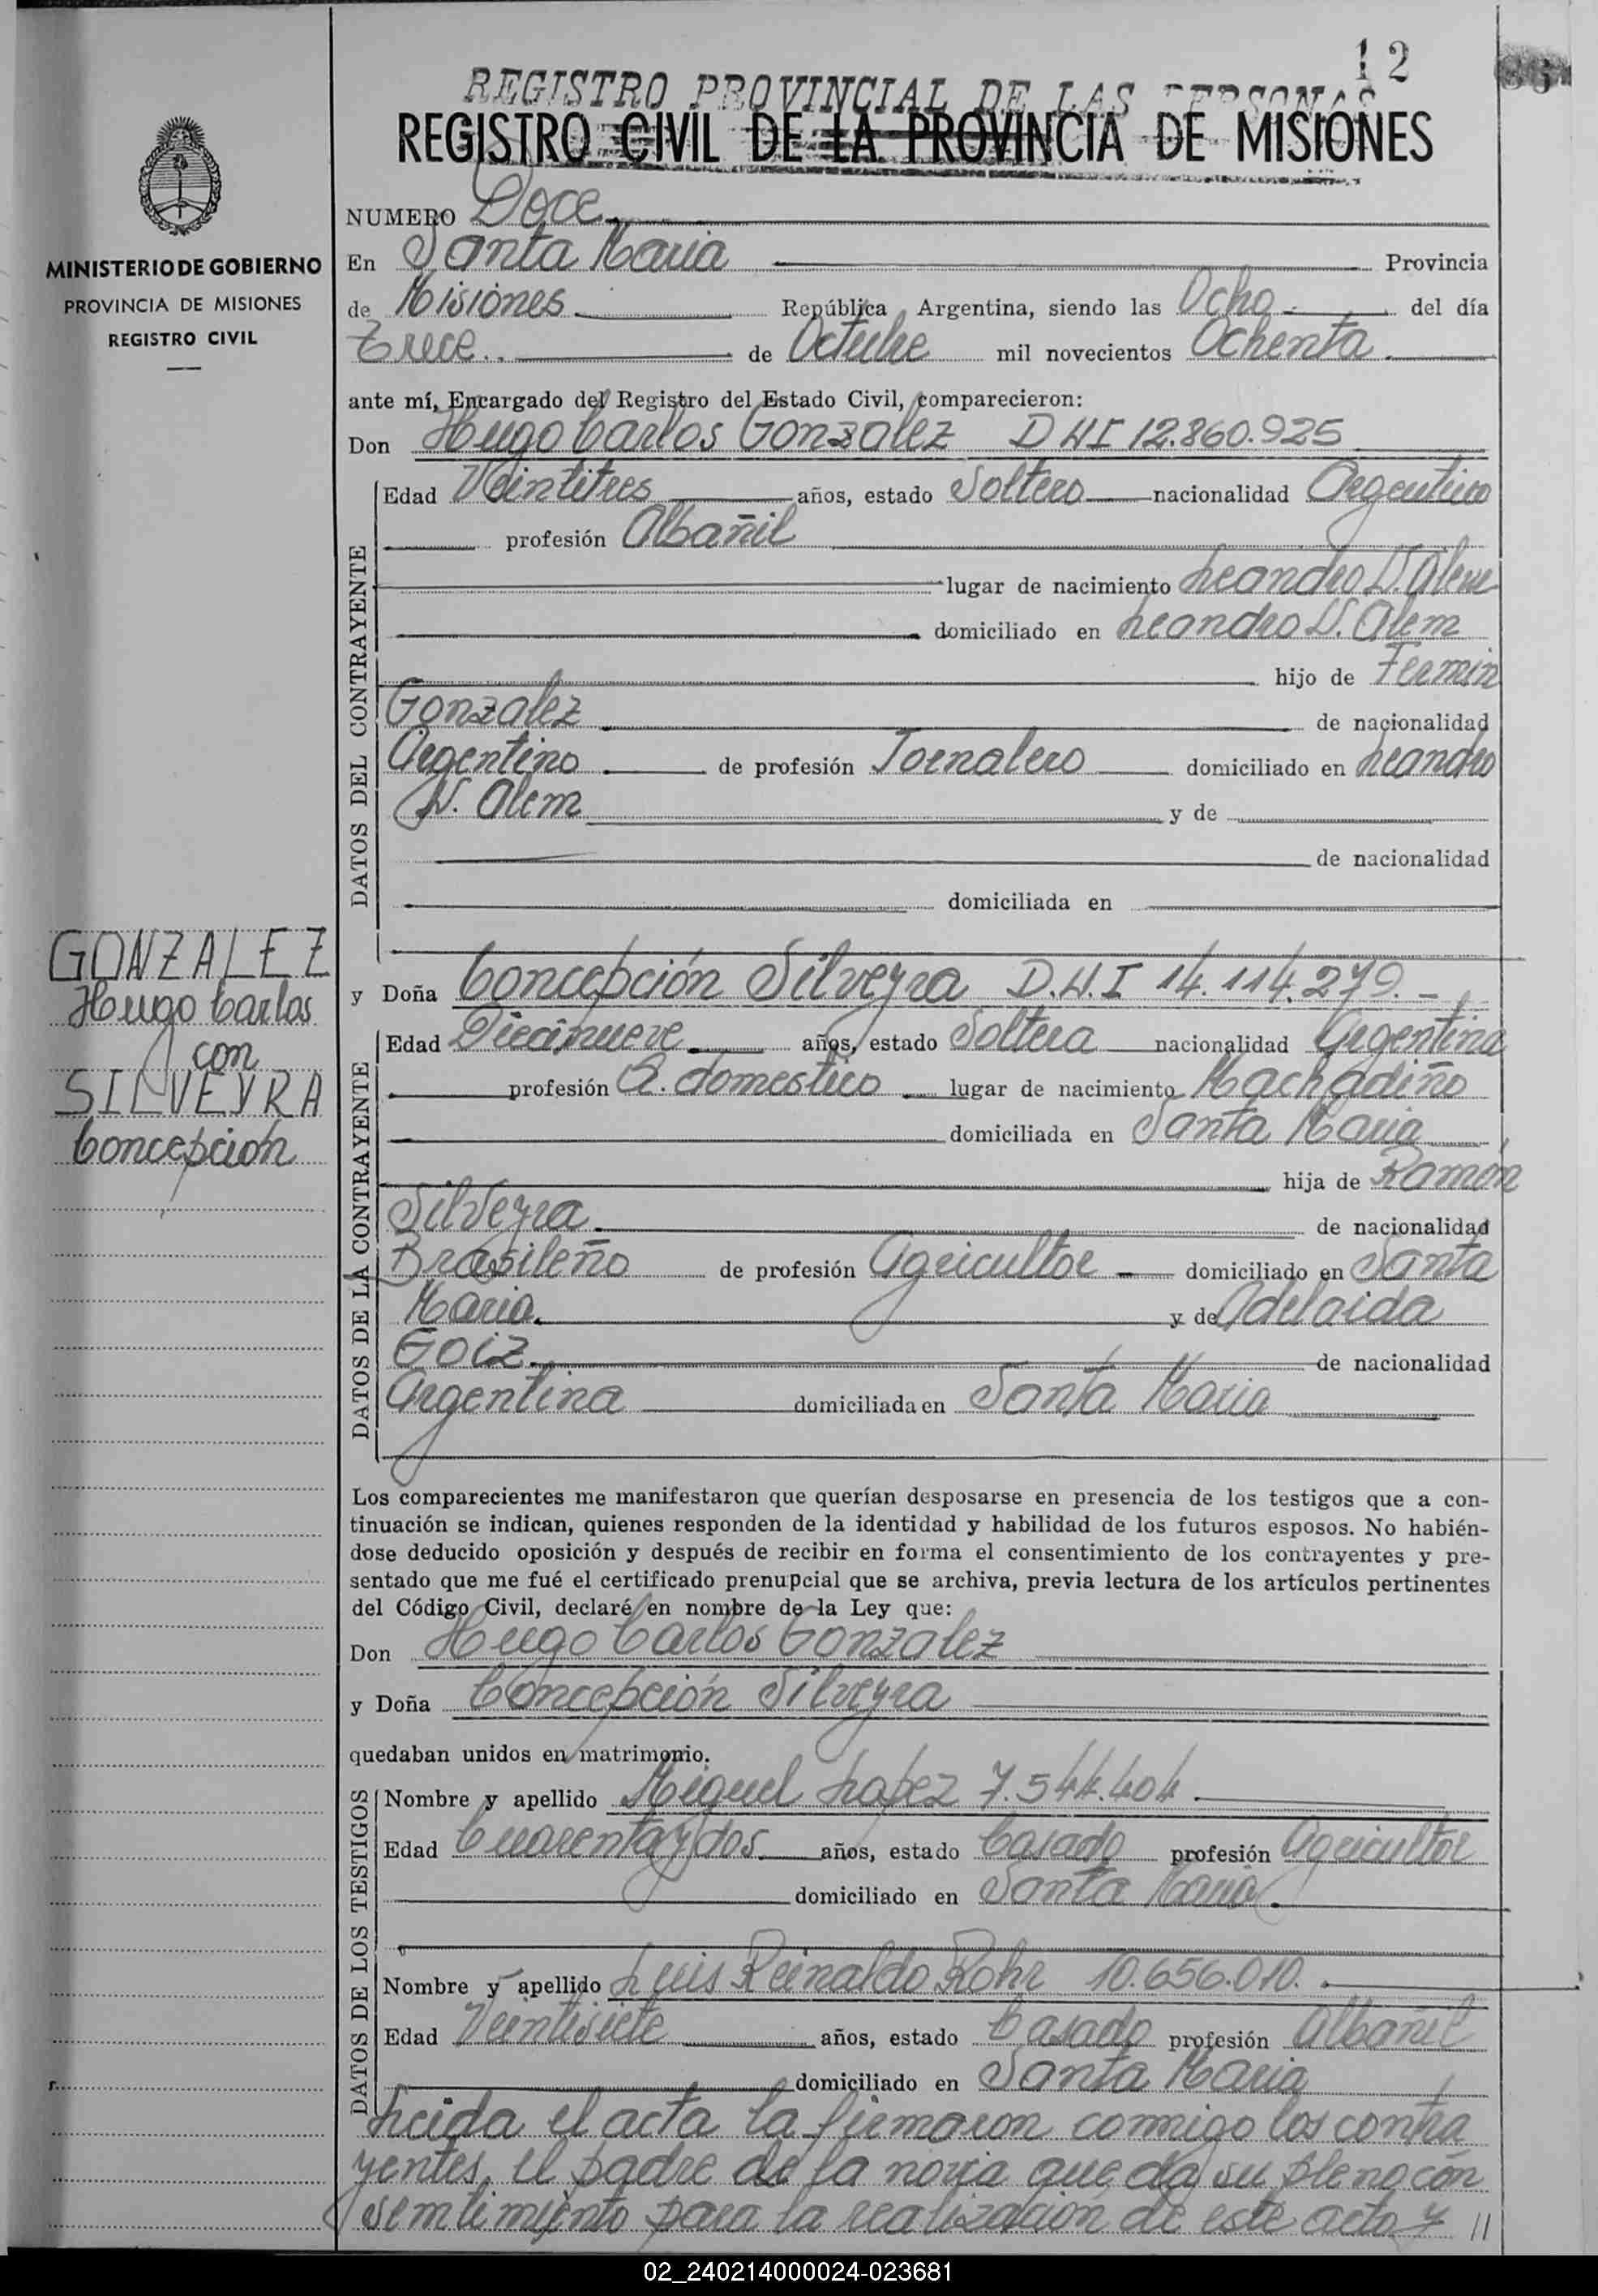 12
REGISTRO PROVINCIAL DE LAS PERSONAS
REGISTRO CIVIL DE LA PROVINCIA DE MISIONES
MINISTERIO DE GOBIERNO
PROVINCIA DE MISIONES
REGISTRO CIVIL
GONZALEZ
Hugo Carlos
con
SILVEYRA
Concepción
NUMERO Doce
En Santa Maria Provincia
de Misiones República Argentina, siendo las Ocho del día
Trece de Octubre mil novecientos Ochenta
ante mí, Encargado del Registro del Estado Civil, comparecieron:
Don Hugo Carlos Gonzalez DNI 12.860.925
DATOS DEL CONTRAYENTE
Edad Veintitres años, estado Soltero nacionalidad Argentino
profesión Albañil
lugar de nacimiento Leandro N. Alem
domiciliado en Leandro N. Alem
hijo de Fermin
Gonzalez de nacionalidad
Argentino de profesión Jornalero domiciliado en Leandro
N. Alem y de
de nacionalidad
domiciliada en
y Doña Concepción Silveyra D.N.I 14.114.279.-
DATOS DE LA CONTRAYENTE
Edad Diecinueve años, estado Soltera nacionalidad Argentina
profesión Q. domestico lugar de nacimiento Machadiño
domiciliada en Santa Maria
hija de Ramón
Silveyra de nacionalidad
Brasileño de profesión Agricultor domiciliado en Santa
Maria y de Adelaida
Goiz de nacionalidad
Argentina domiciliada en Santa Maria
Los comparecientes me manifestaron que querían desposarse en presencia de los testigos que a con-
tinuación se indican, quienes responden de la identidad y habilidad de los futuros esposos. No habién-
dose deducido oposición y después de recibir en forma el consentimiento de los contrayentes y pre-
sentado que me fué el certificado prenupcial que se archiva, previa lectura de los artículos pertinentes
del Código Civil, declaré en nombre de la Ley que:
Don Hugo Carlos Gonzalez
y Doña Concepción Silveyra
quedaban unidos en matrimonio.
DATOS DE LOS TESTIGOS
Nombre y apellido Miguel Lopez 7.544.404
Edad Cuarenta y dos años, estado Casado profesión Agricultor
domiciliado en Santa Maria
Nombre y apellido Luis Reinaldo Rohr 10.656.010.
Edad Veintisiete años, estado Casado profesión Albañil
domiciliado en Santa Maria
Leida el acta la firmaron conmigo los contra
yentes, el padre de la novia que da su pleno con
sentimiento para la realizacion de este acto y //
02_240214000024-023681